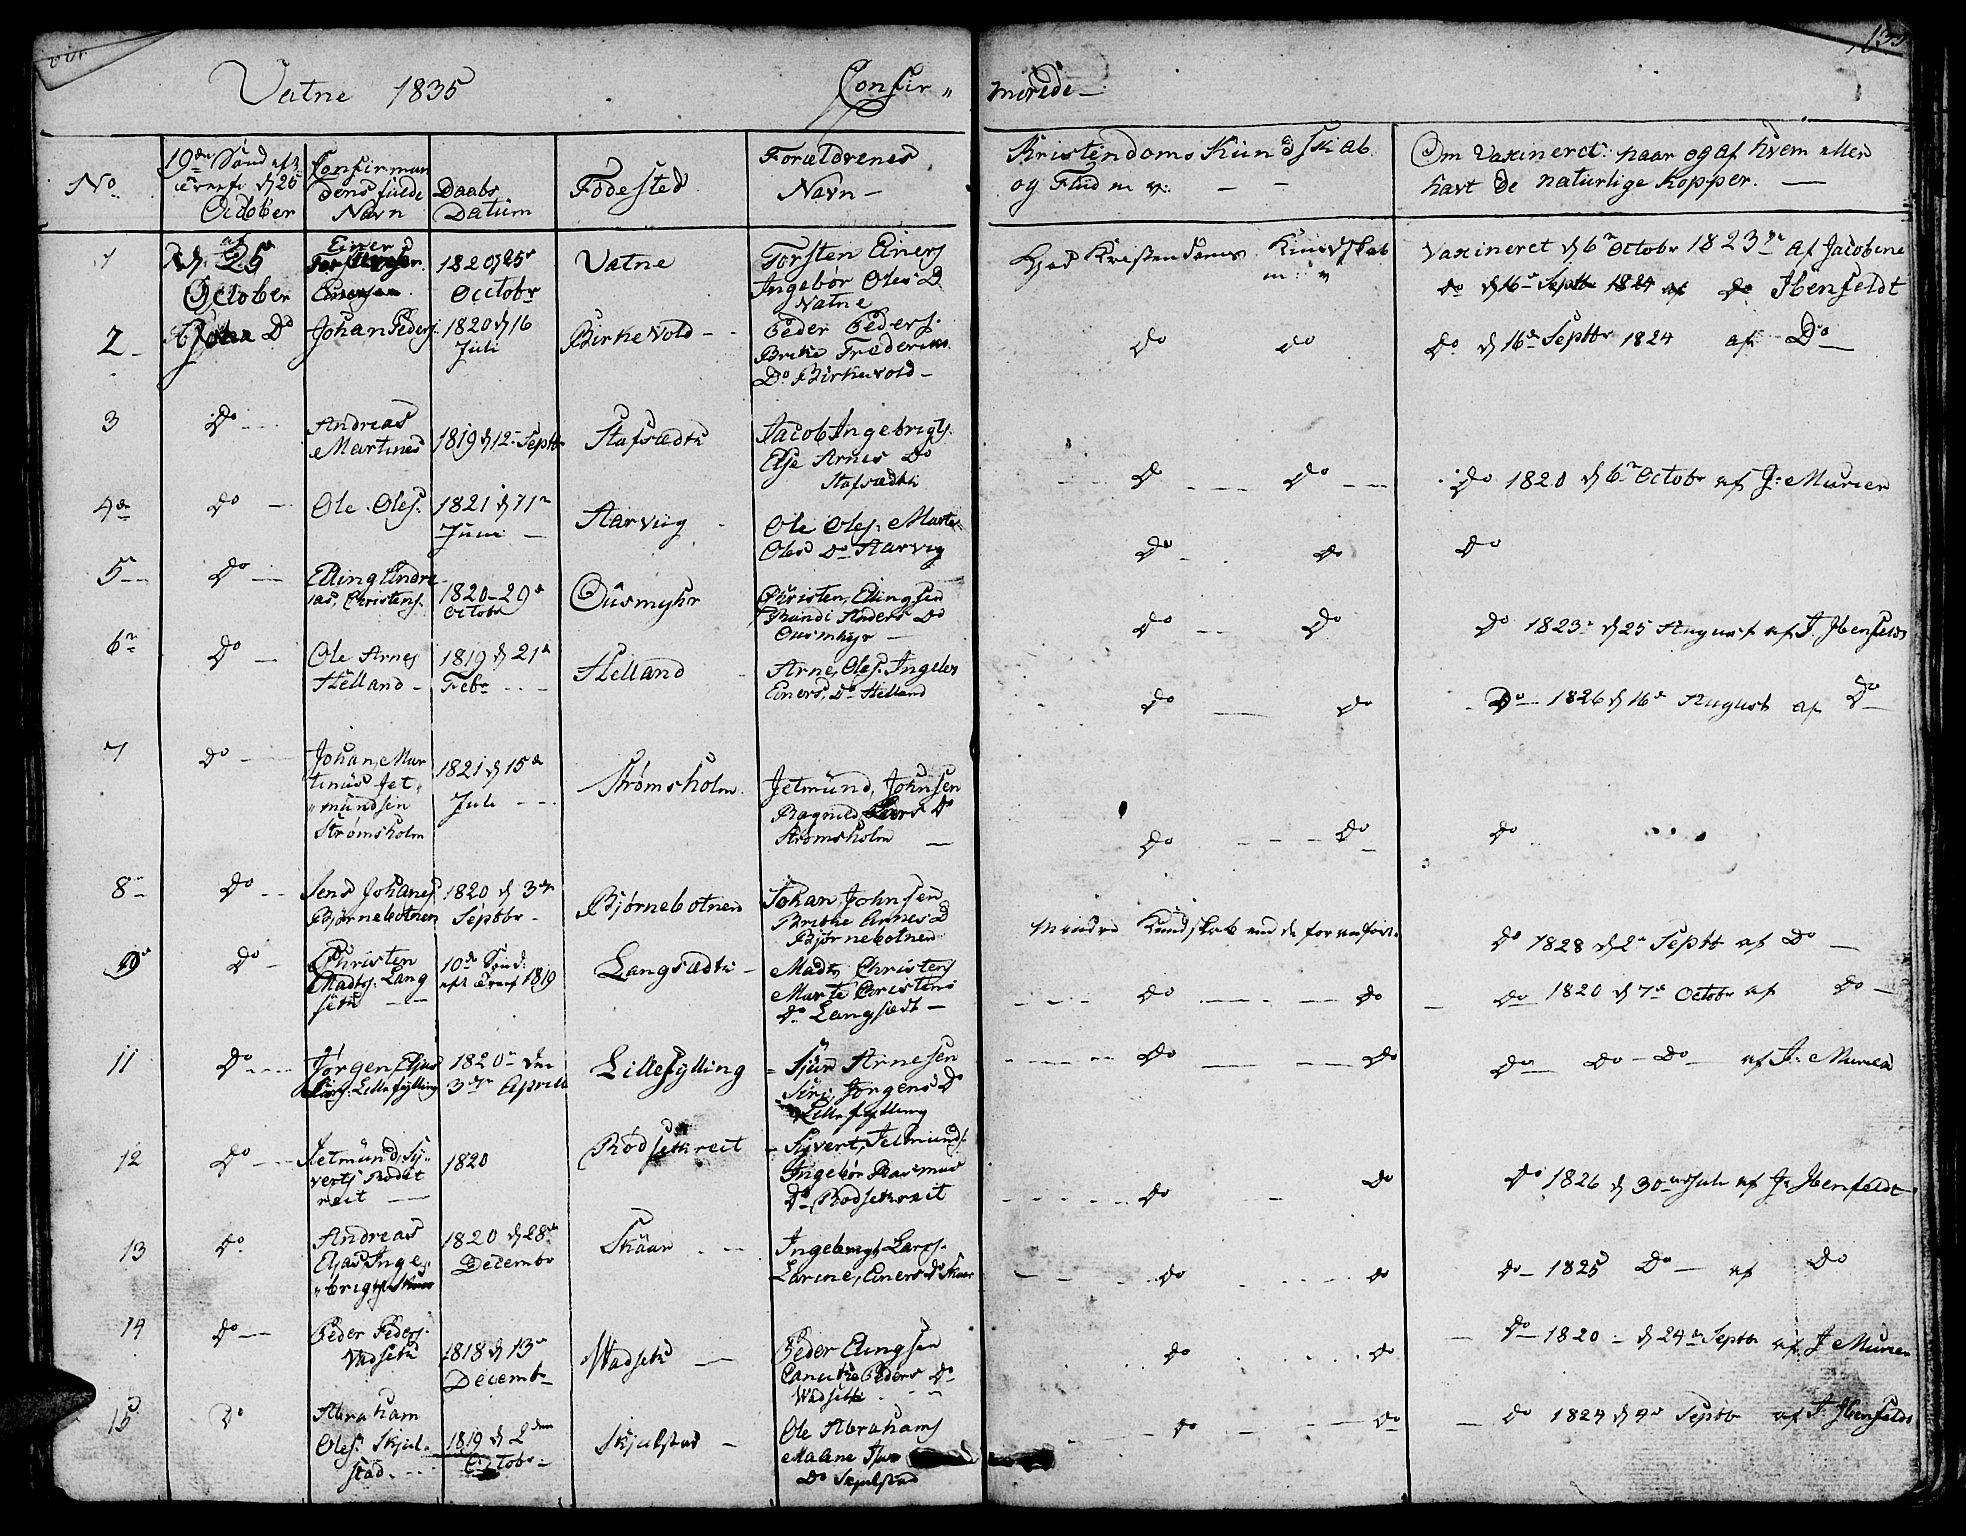 Vatne 1835 Confir„ merede
No
19de Sønd eft:
October
Confirman
dens fulde
Navn
Daabs
Datum
Fødested
Forældrenes
Navn
Kristendoms Kundskab
og Flid m v:
Om Vaxineret: naar og af hvem eller
havt de naturlige Kopper.
1
25
October
Einer
1820 d 25
Octobr
Vatne
Torsten Einers
Ingebør Oles D
Vatne
Kristendoms Kundskab
m: v
Vaxineret d 6te Octobr 1823 af Jacobine
do d 16 Septbr 1824 af do Ibenfeldt
2
Do
Johan Peders
1820 d 16
Juli
Birkevold
Peder Peders
Do Birkevold
do do
do d 16de Septbr 1824 af Do
3
do
Andreas
Martines
1819 d 12 Septbr
Stafsædth
Jacob Ingebrigts
Else Arnes Do
Stafsædth
do do
do 1820 d 6te Octobr af J: Murier
4de
do
Ole Oles.
1821 d 11te
Juni
Aarviig
Ole Oles. Marte
Olesd Do Aarvig
do do
do
5
do
Elling Andre
as, Christens.
1820 29de
Octobr
Ousmyhr
Christen, Ellingsen
Randi Anders Do
Ousmhyr
do do
do 1823 d 25 August af J. Ibenfeldt
6te
do
Ole Arnes
Helland
1819 d 21de
Febr
Helland
Arne, Oles. Ingebor
Einers, Do Helland
do do
Do 1826 d 16de August af Do
7
do
Johan, Mar
tinus Jet„
„mundsen
Strømsholm
1821 d 15de
Juli
Strømsholm
Jetmund, Johnsen
Ragnild, Lars Do
Strømsholm
do do
do
8
do
Jens Johanes
Bjørnebotnen
1820 d 3die
Septbr
Bjørnebotnen
Johan, Johnsen
Britke Arnes D
Bjørnebotnen
Mindre Kundskab end de foranført.
do 1828 d 2de Septb af Do
do
Christen
Madts. Lang
seth
10de Sønd:
1819
Langsædth
Mads, Christens
Marte Christens
do Langsædt
do do
do 1820 d 7de Octobr af do
11
do
Jørgen, Elias
Lillefylling
1820 den
3die Aprill
Lillefylling
Sjur Arnesen
Siri, Jørgens Do
Lillefylling
do do
do do do af J: Murier
12
do
Jetmund, Sy„
verts Rødset
reit
1820
Rødsethreit
Syvert, Jetmunds:
Ingebør Rasmus
Do Rødsethreit
do do
do 1826 d 30 Juli af J: Ibenfeldt
13
do
Andreas
Elias Inge„
„brigts Skaar
1820 d 28de
Decembr
Skaar
Ingebrigt, Larss.
Larine, Einers Do Skaar
do do
do 1825 Do af do
14
do
Peder Peders.
Vadseth
1818 d 13de
Decembr
Wadseth
Peder Elingsen
Peders do
Wadseth
do do
do 1820 d 24de Septbr af J Murier
15
Do
Abraham
Oles. Skjel„
stad
1819 d 2den
October
Skjelstad
Ole Abrahams
Malene
Do Skjelstad
do do
do 1824 d 4de Septbr af J. Ibenfeldt